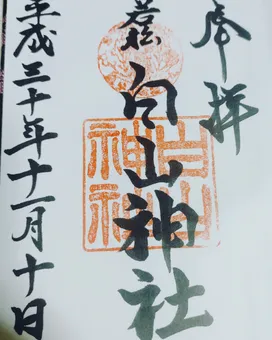 奉拝
若松
白山神社
白山
神社
平成三十年十一月十日